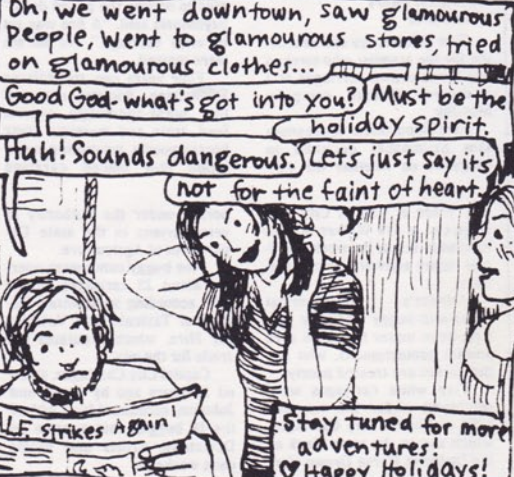 Oh, we went downtown, saw glamourous
people, went to glamourous stores, tried
on glamourous clothes...
Good God-what's got into you?
Must be the
holiday spirit.
Huh! Sounds dangerous.
Let's just say it's
not for the faint of heart.
Strikes Again!
Stay tuned for more
adventures!
♡ Happy Holidays!